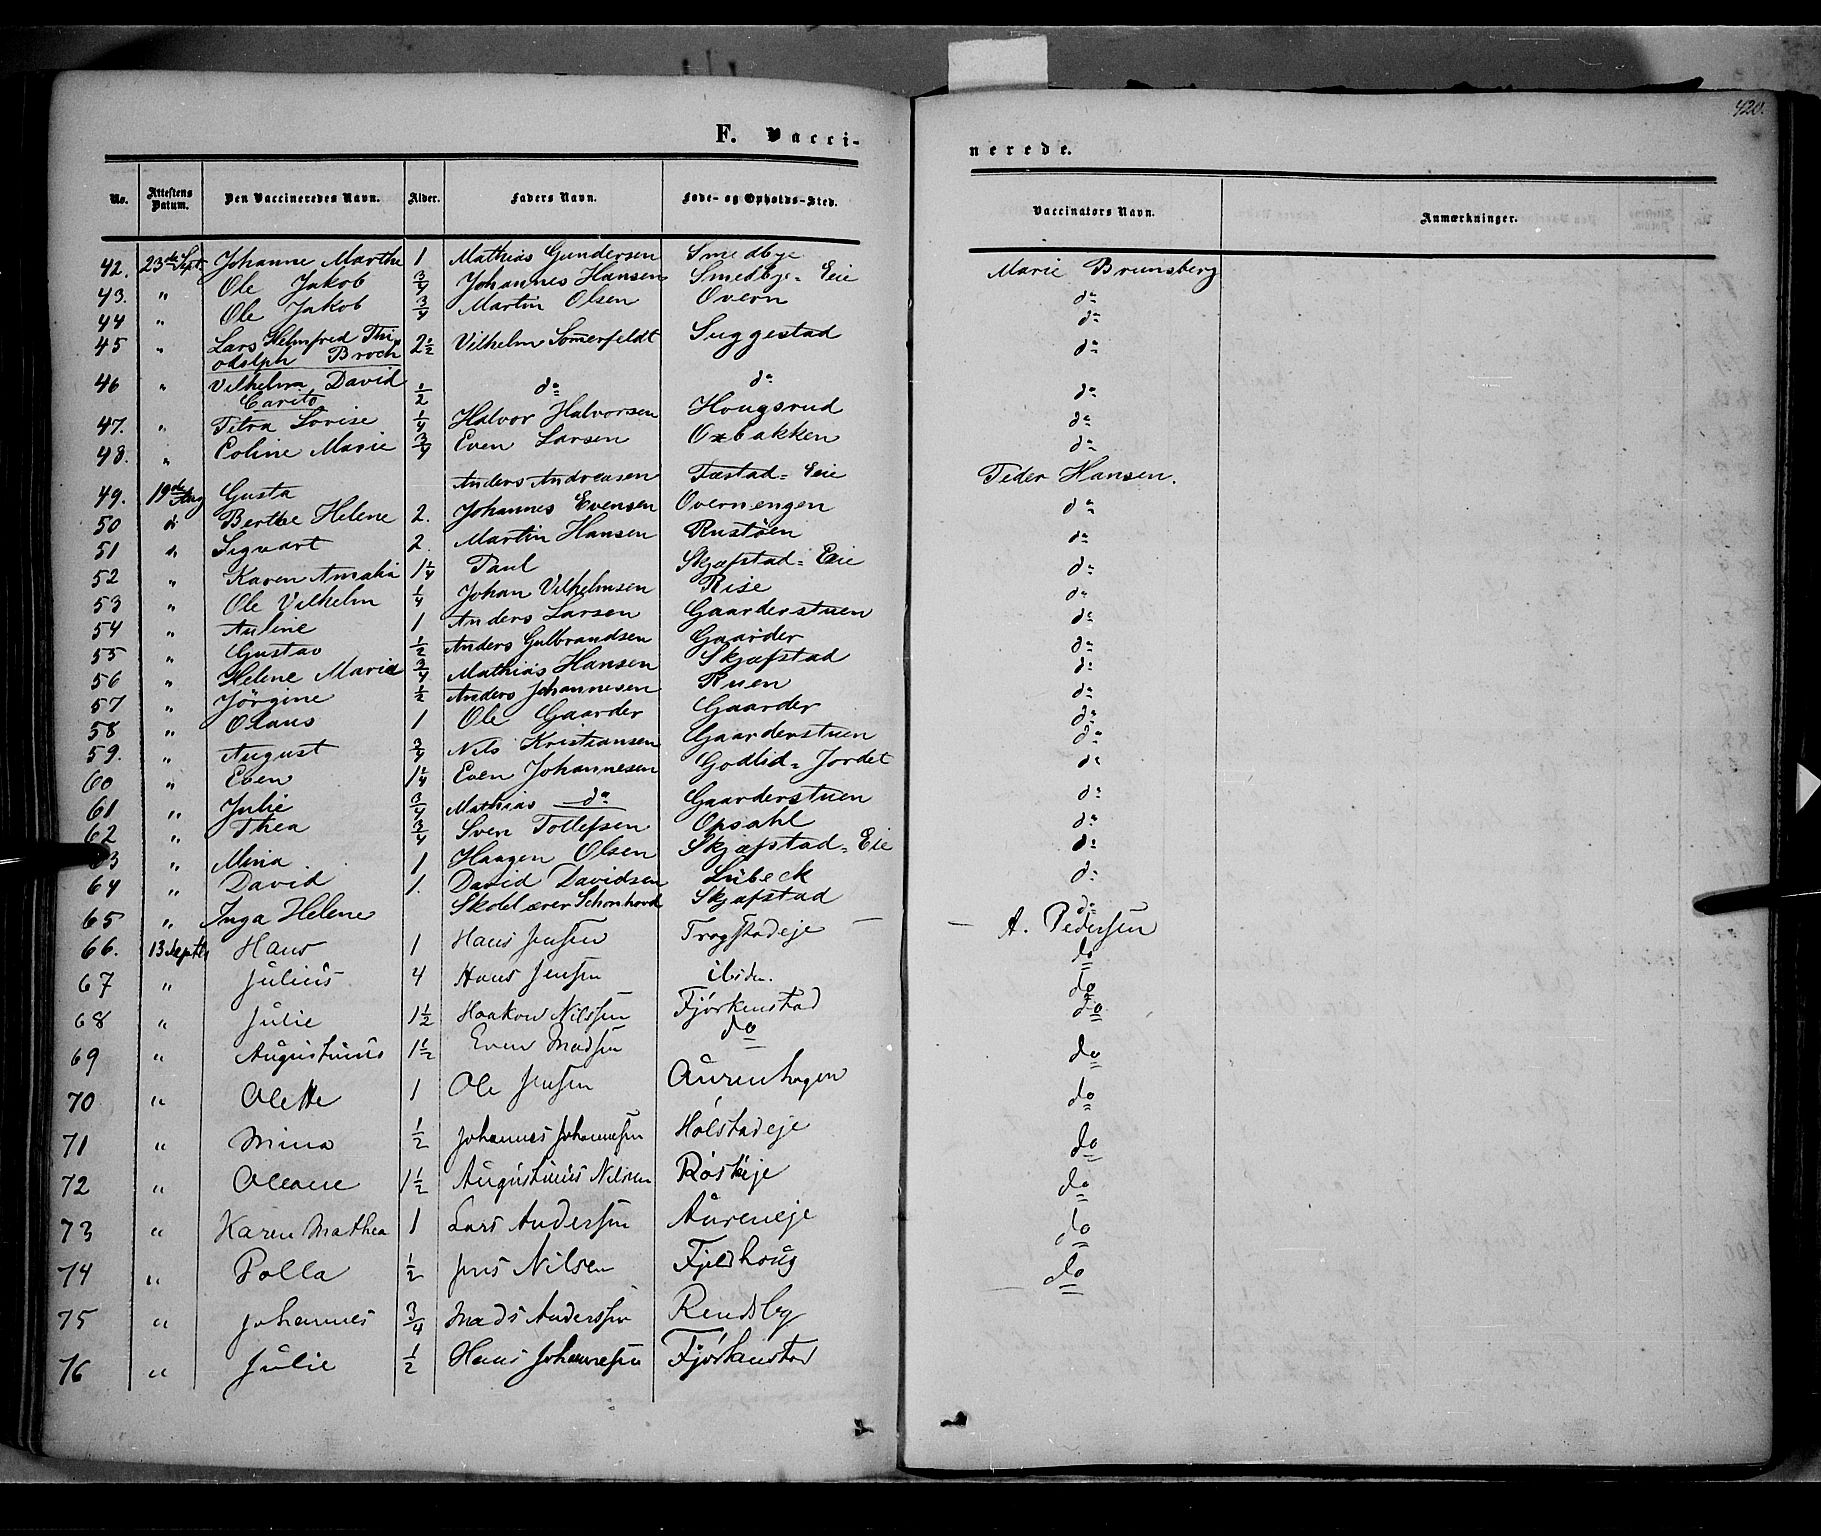 420.
F. Vacci-
nerede.
No. Attestens Datum. Den Vaccineredes Navn. Alder. Faders Navn. Føde- og Opholds-Sted. Vaccinators Navn. Anmærkninger.
42. 23de Sept. Johanne Marthe 1 Mathias Gundersen Smedbye Marie Brunsberg
43. " Ole Jakob 3/4 Johannes Hansen Smedbye-Eie do
44 " Ole Jakob 3/4 Martin Olsen Overn do
45 " Lars Helmfred Thi-
odolph Broch 2 1/2 Vilhelm Somerfeldt Suggestad do
46 " Vilhelm David
Carito 1/2 do do do
47. " Petra Lovise 1/4 Halvor Halvorsen Hougsrud do
48. " Eoline Marie 3/4 Even Larsen Oxbakken do
49. 19de Aug Gusta Anders Andreasen Fæstad-Eie Peder Hansen.
50 d: Berthe Helene 2. Johannes Evensen Overnengen do
51 " Sigvart 2. Martin Hansen Rustøen do
52 " Karen Amalia 1 1/4 Paul Skjæfstad-Eie do
53 " Ole Vilhelm 1/4 Johan Vilhelmsen Rise do
54 " Auline 1 Anders Larsen Gaarderstuen do
55 " Gustav 1/2 Anders Gulbrandsen Gaarder do
56 " Helene Maria 3/4 Mathias Hansen Skjæfstad do
57 " Jørgine 1/2 Anders Johannesen Ruen do
58 " Olaus 1 Ole Gaarder Gaarder do
59. " August 3/4 Nils Kristiansen Gaarderstuen do
60 " Even 1 1/4 Even Johannesen Godlid-Jordet do
61 " Julie 3/4 Mathias do Gaarderstuen do
62 " Thea 3/4 Sven Tollefsen Opsahl do
63 " Mina. 1 Haagen Olsen Skjæfstad-Eie do
64 " David 1. David Davidsen Lübeck do
65 " Inga Helene Skolelærer Schonhovd Skjæfstad do
66. 13 Septbr Hans 1 Hans Jensen Trogstadeje A. Pedersen
67 " Julius 4 Hans Jensen ibidm. do
68 " Julie 1 1/2 Haakon Nilssen Fjørkenstad do
69 " Augustinus 1 1/2 Even Madsen do do
70 " Olette 1 Ole Jensen Aurenhagen do
71 " Mina 1/2 Johannes Johannesen Holstadeje do
72 " Oleane 1 1/2 Augustinus Nilsen Røsteje do
73 " Karen Mathea 1 Lars Anderssen Aureneje do
74 " Polla 1/2 Jens Nilsen Fjeldhoug do
75 " Johannes 3/4 Mads Anderssen Rendsby do
76 " Julie 1/2 Hans Johannesen Fjørkenstad